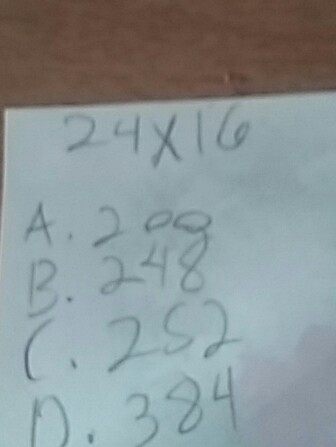 24X16
A. 200
B. 248
C. 252
D. 384